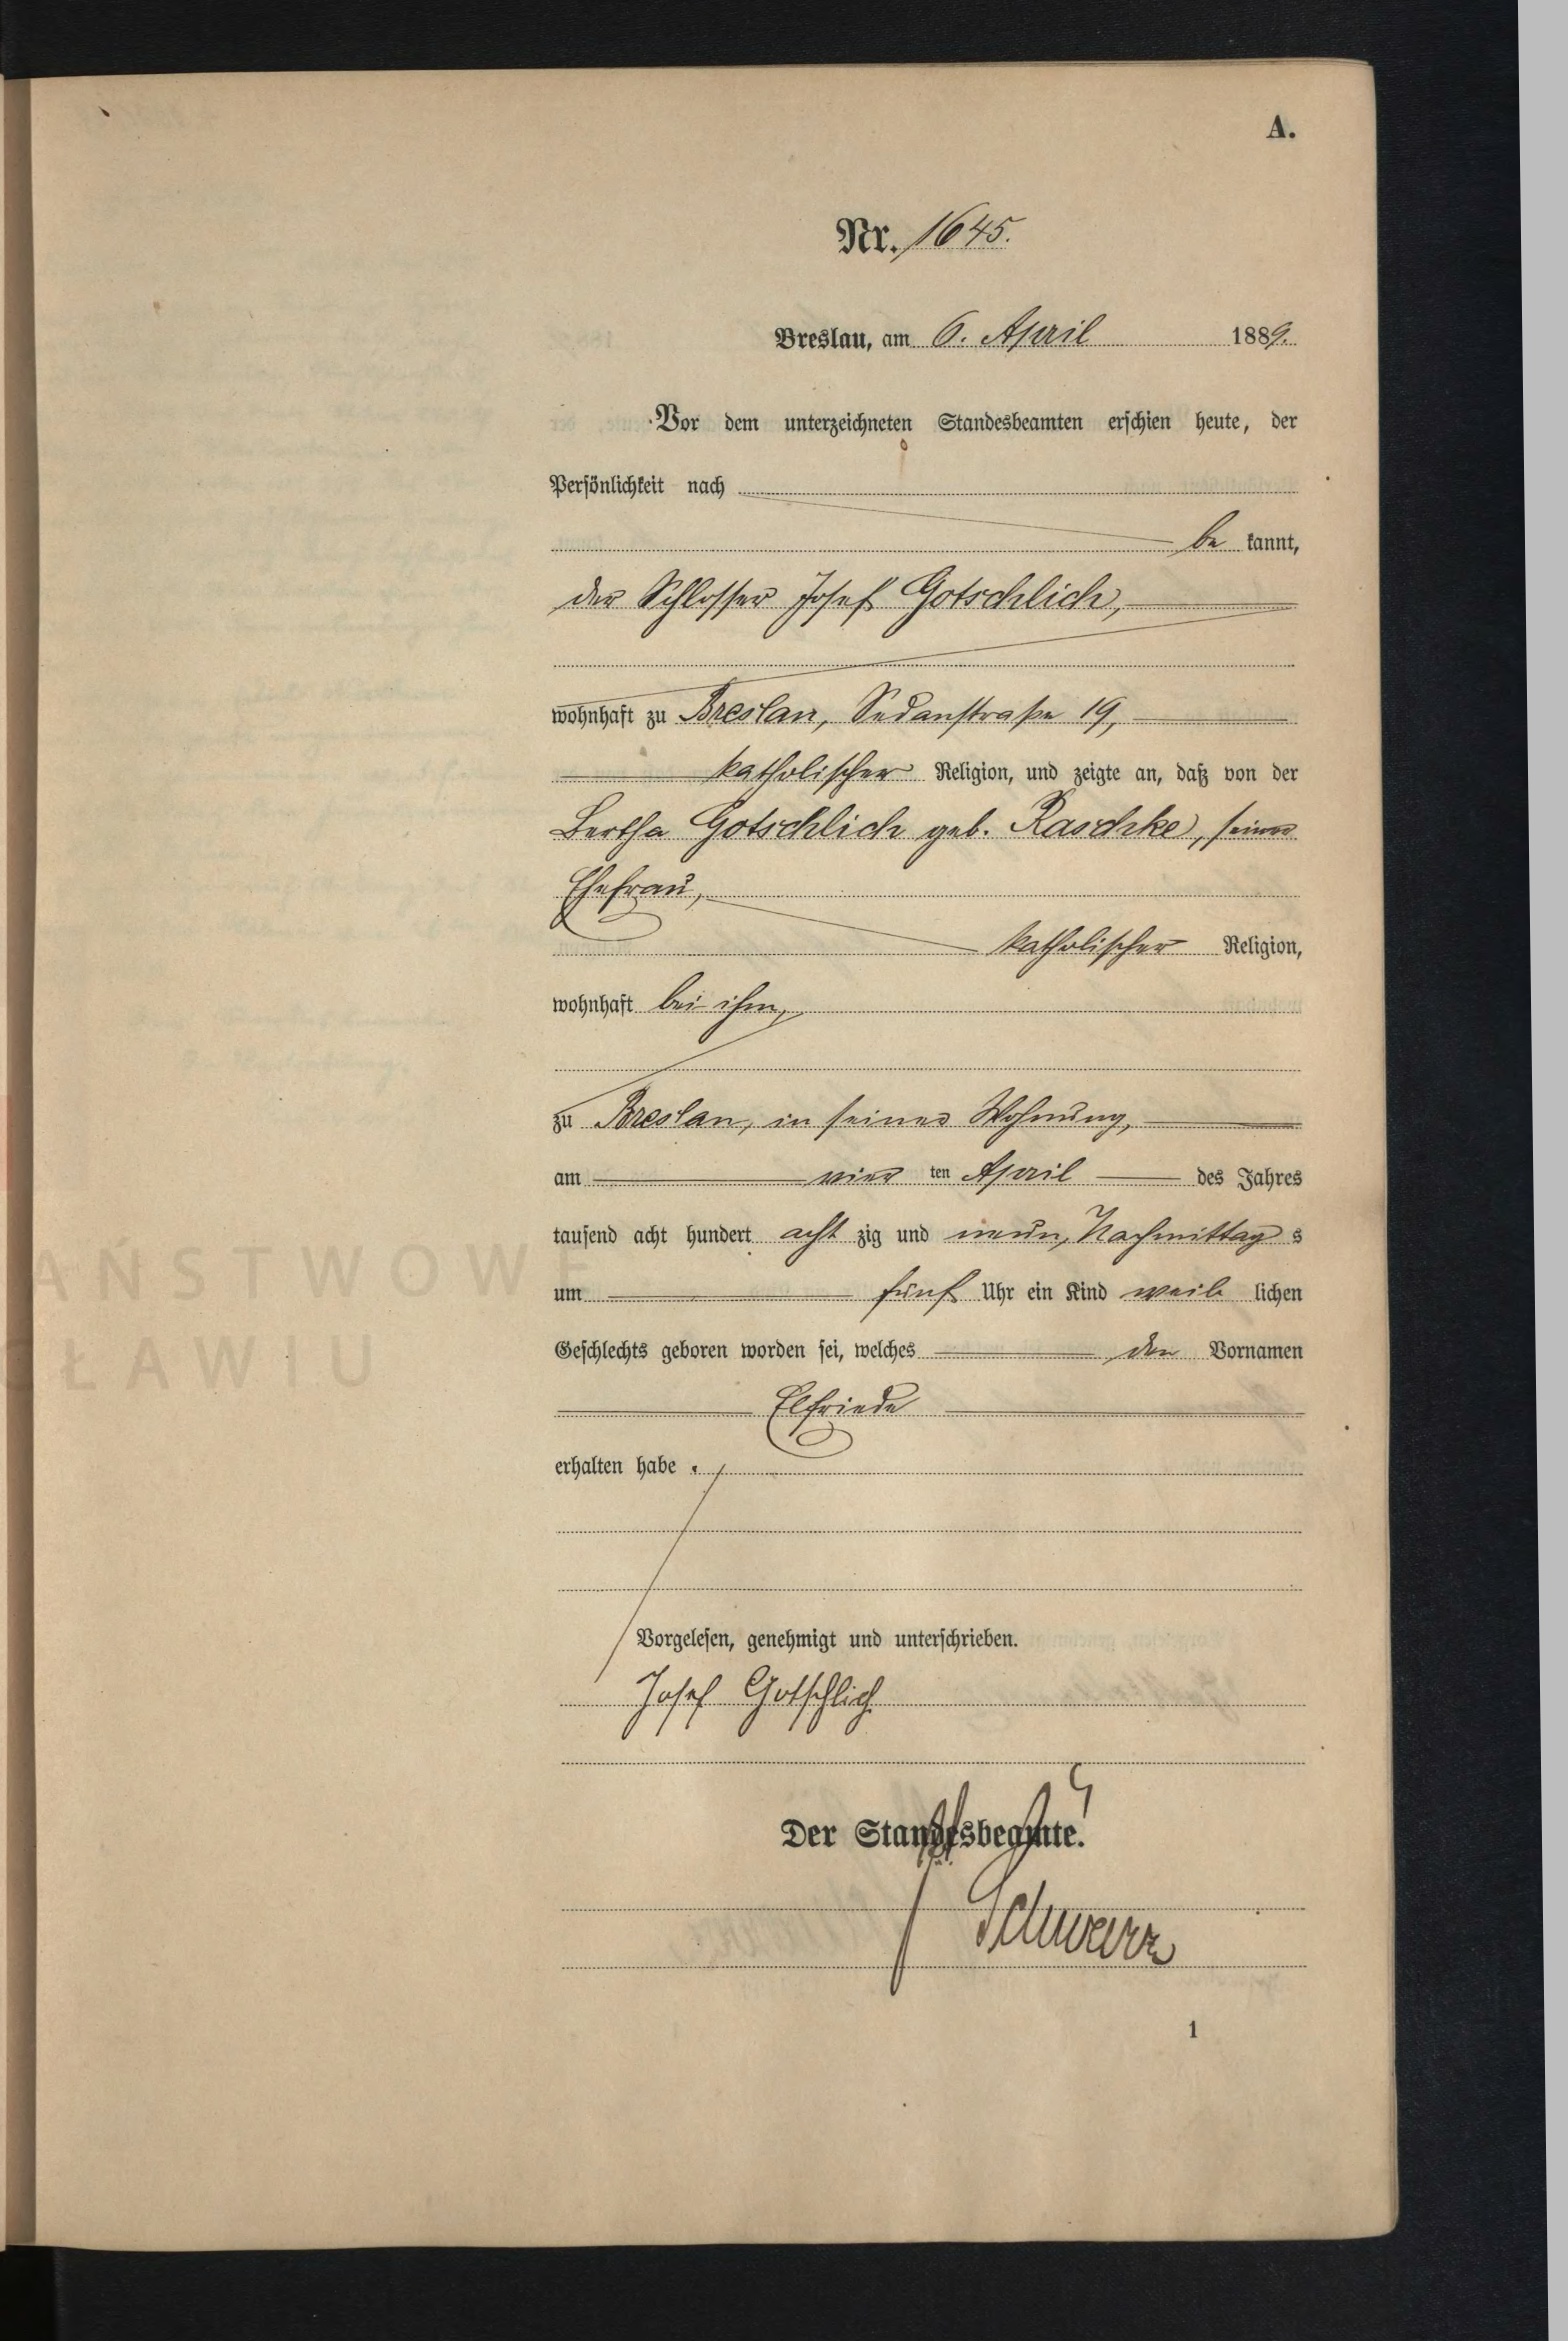 A.
Nr. 1645.
Breslau, am 6. April 1889.
Vor dem unterzeichneten Standesbeamten erschien heute, der
Persönlichkeit nach
be kannt,
der Schlosser Josef Gotschlich,
wohnhaft zu Breslau, Sedanstraße 19,
katholischer Religion, und zeigte an, daß von der
Bertha Gotschlich geb. Raschke, seiner
Ehefrau,
katholischer Religion,
wohnhaft bei ihm,
zu Breslau, in seiner Wohnung,
am vier ten April des Jahres
tausend acht hundert acht zig und neun, Nachmittag s
um fünf Uhr ein Kind weib lichen
Geschlechts geboren worden sei, welches den Vornamen
Elfriede
erhalten habe.
Vorgelesen, genehmigt und unterschrieben.
Josef Gotschlich
Der Standesbeamte.
Schwarz
1
AŃSTWOWE
CŁAWIU